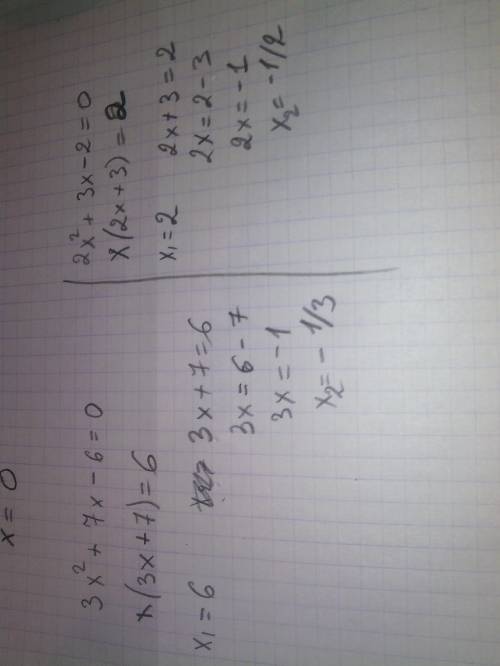 x = 0
3x² + 7x - 6 = 0
x(3x + 7) = 6
x₁ = 6 3x + 7 = 6
3x = 6 - 7
3x = -1
x₂ = - 1/3
2x² + 3x - 2 = 0
x(2x + 3) = 2
x₁ = 2 2x + 3 = 2
2x = 2 - 3
2x = -1
x₂ = -1/2